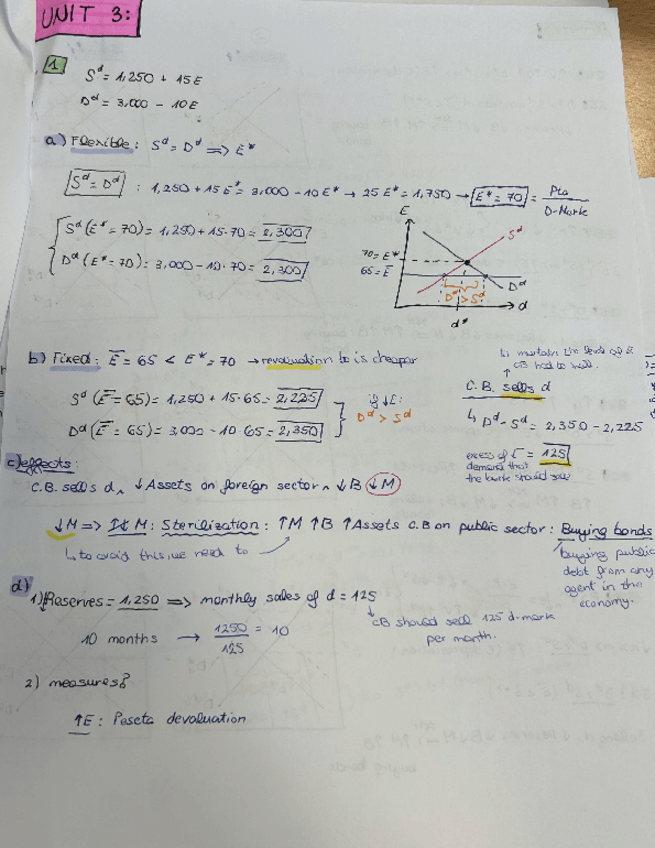 UNIT 3:
1
S^d = 1,250 + 15E
D^d = 3,000 - 10E
a) Flexible: S^d = D^d => E*
S^d = D^d : 1,250 + 15E* = 3,000 - 10E* → 25E* = 1,750 → E* = 70 = Pta / D-Mark
S^d (E* = 70) = 1,250 + 15·70 = 2,300
D^d (E* = 70) = 3,000 - 10·70 = 2,300
E
S^d
70 = E*
65 = E̅
D^d
D^d > S^d
d
d*
b) Fixed: E̅ = 65 < E* = 70 → revaluation to is cheaper
S^d (E̅ = 65) = 1,250 + 15·65 = 2,225
D^d (E̅ = 65) = 3,000 - 10·65 = 2,350
if ↓E:
D^d > S^d
to maintain the level of E
CB had to sell.
C.B. sells d
↳ D^d - S^d = 2,350 - 2,225
= 125
excess of
demand that
the bank should sell
c) effects:
C.B. sells d, ↓Assets on foreign sector, ↓B ↓M
↓M => I↓ M: Sterilization: ↑M ↑B ↑Assets C.B on public sector: Buying bonds
↳ to avoid this, we need to
buying public
debt from any
agent in the
economy.
d)
1) Reserves = 1,250 => monthly sales of d = 125
CB should sell 125 d-mark
per month.
10 months → 1250 / 125 = 10
2) measures?
↑E: Peseta devaluation